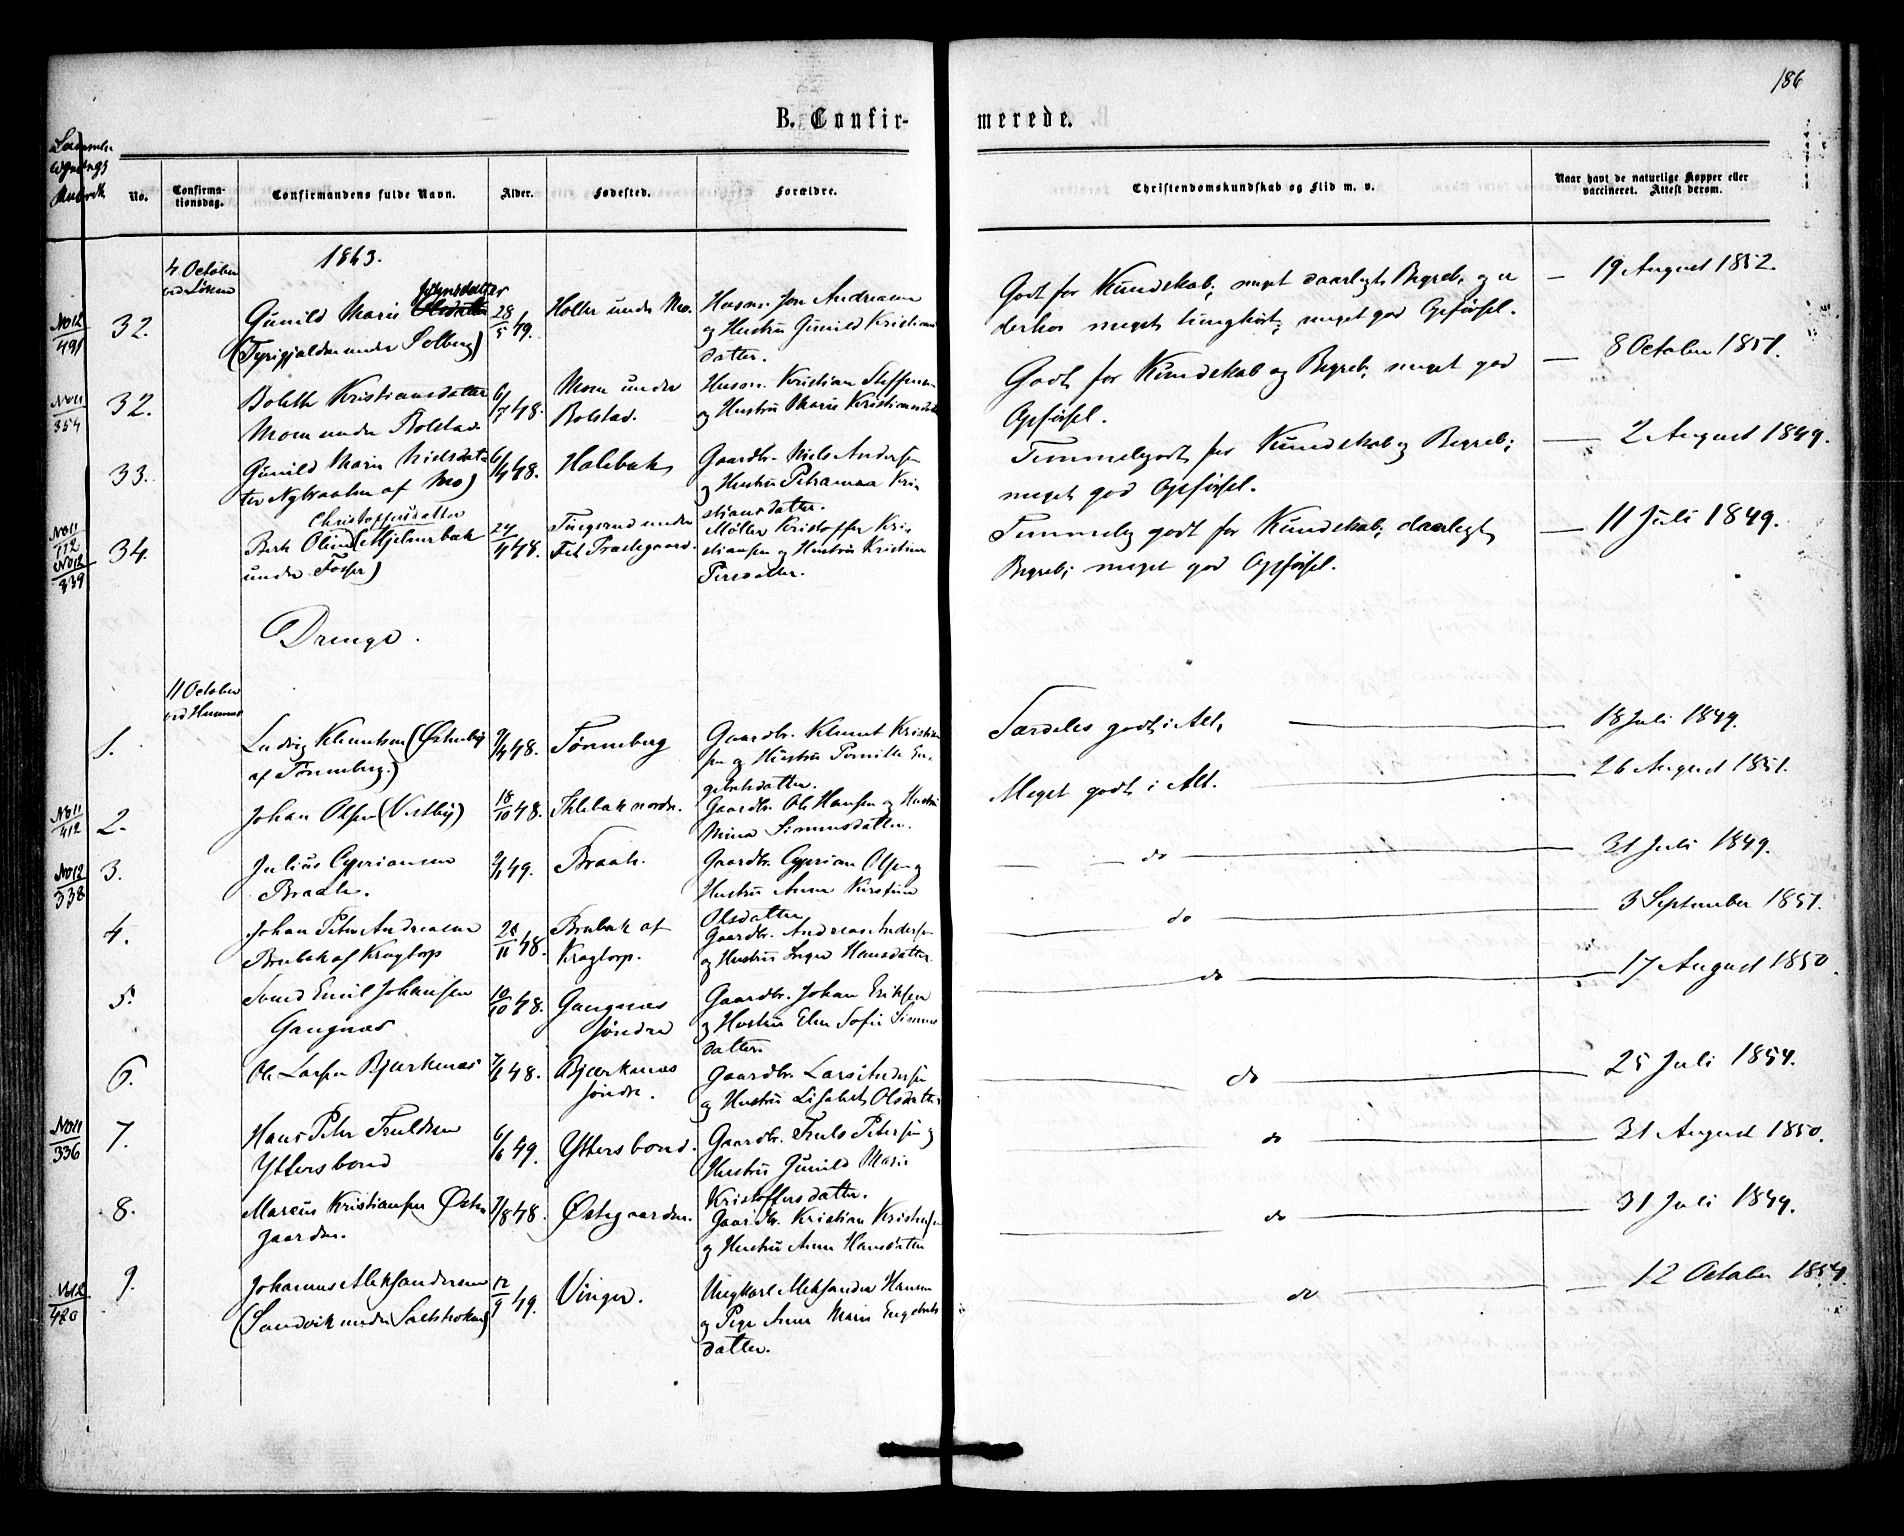 186
B. Confir-
merede.
No.
Confirma-
tionsdag.
Confirmandens fulde Navn.
Alder.
Fødested.
Forældre.
Christendomskundskab og Flid m. v.
Naar havt de naturlige Kopper eller
vaccineret. Attest derom.
1863.
4 October
No 12
491
32.
Gunild Marie Olsdatter
28/5 49.
Holter under Mo.
Husm. Jon Andreasen
og Hustru Gunild Kristians
datter.
Godt for Kundskab; meget daarligt Begreb, og er
derhos meget tunghørt; meget god Opførsel.
19 August 1852.
No 11
354
32.
Boleth Kristiansdatter
Moen under Bolstad
6/7 48.
Moen under
Bolstad.
Husm. Kristian Steffensen
og Hustru Marie Kristiansdatter
Godt for Kundskab og Begreb; meget god
Opførsel.
8 October 1851.
33.
Gunild Marie Nielsdat
ter Nybraaten af Mo)
6/4 48.
Holebak
Gaardbr. Niels Andersen
og Hustru Petramaa Kri
stiansdatter.
Temmelig godt for Kundskab og Begreb;
meget god Opførsel.
2 August 1849.
No 11
172
No 12
339
34.
Christoffersdatter
Berte Oline (Mjelnerbak
under Fosser)
24/4 48.
Fet Præstegaard.
Møller Kristoffer Kri
stiansen og Hustru Kristine
Persdatter.
Temmelig godt for Kundskab; daarligt
Begreb; meget god Opførsel.
11 Juli 1849.
Drenge.
11 October
ved Hemnes
1.
Ludvig Klemetsen (Østneby
af Tønneberg.)
9/4 48.
Tønneberg
Gaardbr. Klemet Kristian
sen og Hustru Pernille En
gebretsdatter.
Særdeles godt i Alt,
18 Juli 1849.
No 11
412
2.
Johan Olsen (Vestby)
18/10 48.
Ihlebæk nordre.
Gaardbr. Ole Hansen og Hustru
Mina Simensdatter.
Meget godt i Alt.
26 August 1851.
No 12
338
3.
Julius Cypriansen
Braate.
2/1 49.
Braate.
Gaardbr. Cyprian Olsen og
Hustru Anne Kirstine
Olsdatter
do
31 Juli 1849.
4.
Johan Peter Andreasen
Brubak af Kragtorp
28/11 48.
Brubak af
Kragtorp.
Gaardbr. Andreas Andersen
og Hustru Inger Hansdatter.
do
3 September 1851.
5.
Svend Emil Johansen
Gangnæs
10/10 48.
Gangnæs
søndre
Gaardbr. Johan Eriksen
og Hustru Elen Sofie Simens
datter.
do
17 August 1850.
6.
Ole Larsen Bjerkenæs
48.
Bjerkenæs
søndre.
Gaardbr. Lars Andersen
og Hustru Lisabet Olsdatter
do
25 Juli 1854.
No 11
336
7.
Hans Peter Trulsen
Yttersbond
6/6 49.
Yttersbond.
Gaardbr. Truls Petersen og
Hustru Gunild Marie
Kristoffersdatter.
do
31 August 1850.
8.
Marcus Kristiansen Østen
gaarden.
7/8 48.
Østegaarden.
Gaardbr. Kristian Kristensen
og Hustru Anne Hansdatter
do
31 Juli 1849.
No 12
420
9.
Johannes Aleksandersen
(Sandvik under Saltsroken)
12/9 49.
Vinger.
Ungkarl Aleksander Hansen
og Pige Anne Marie Engebrets
datter.
do
12 October 1854.